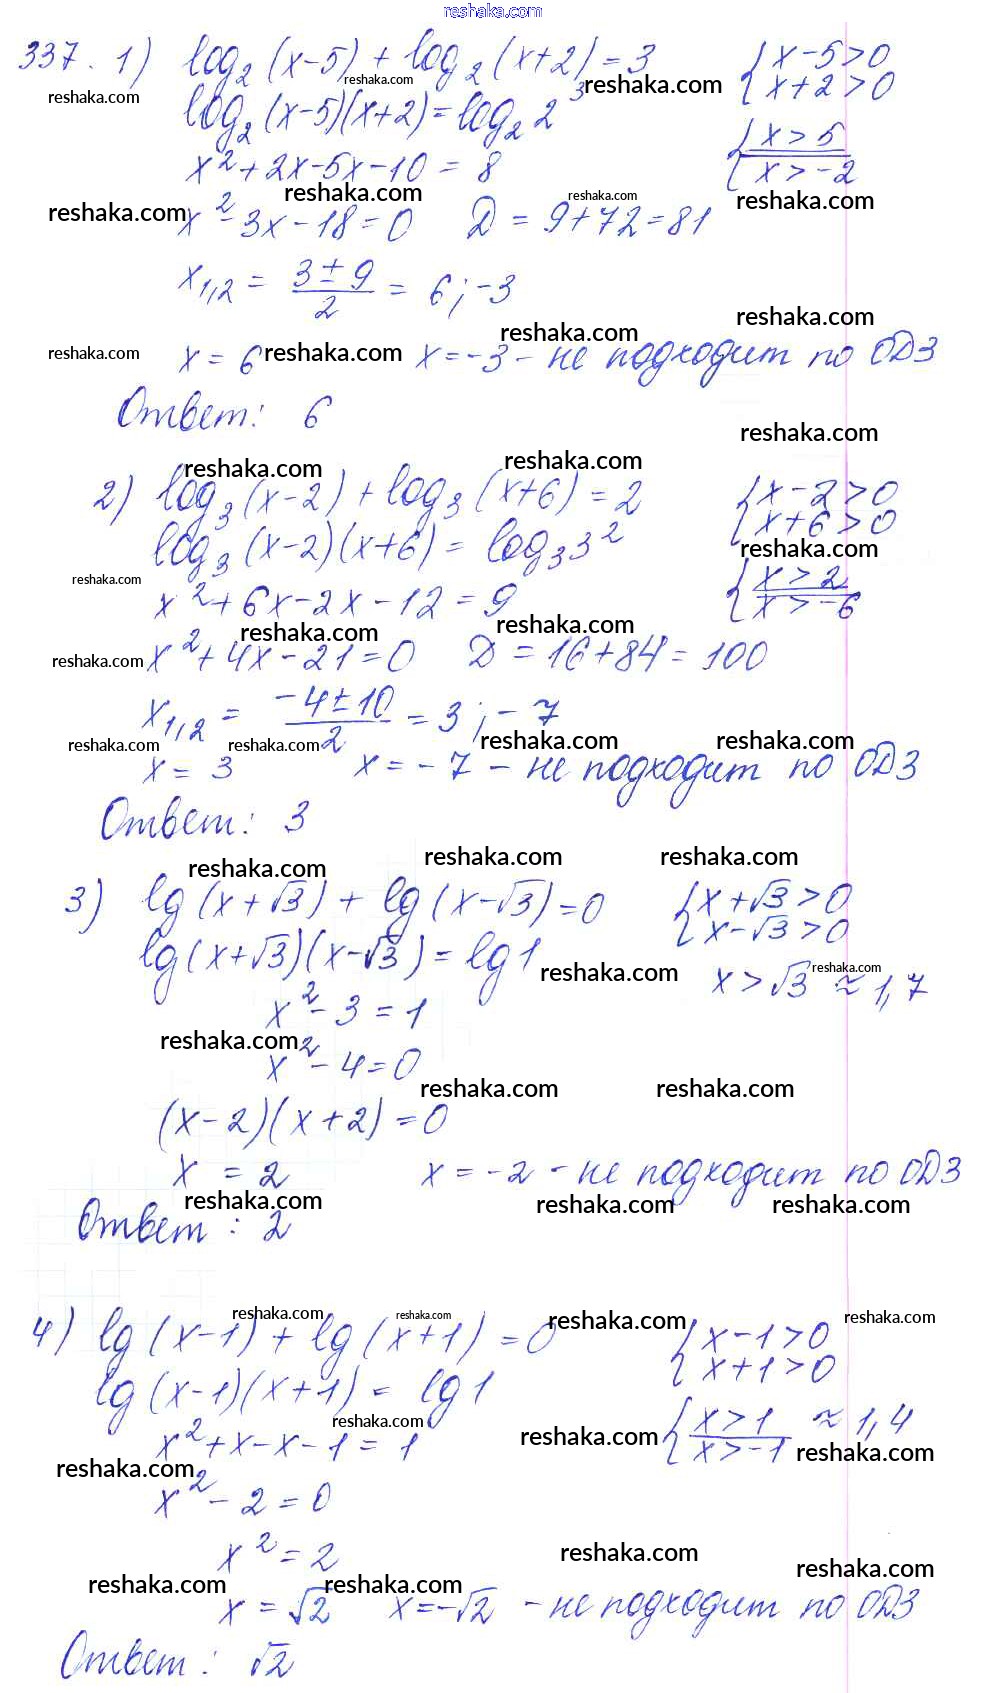 reshaka.com
337. 1) log₂(x-5) + log₂(x+2) = 3 { x-5>0
reshaka.com reshaka.com reshaka.com { x+2>0
log₂(x-5)(x+2) = log₂2³
x²+2x-5x-10 = 8 { x>5
{ x>-2
reshaka.com reshaka.com reshaka.com reshaka.com
x²-3x-18=0 D = 9+72=81
x₁,₂ = (3±9)/2 = 6; -3
reshaka.com reshaka.com
reshaka.com reshaka.com
x = 6 x=-3 - не подходит по ОДЗ
Ответ: 6
reshaka.com
reshaka.com reshaka.com
2) log₃(x-2) + log₃(x+6) = 2 { x-2>0
{ x+6>0
log₃(x-2)(x+6) = log₃3²
reshaka.com
reshaka.com
x²+6x-2x-12=9 { x>2
{ x>-6
reshaka.com reshaka.com
reshaka.com
x²+4x-21=0 D=16+84=100
x₁,₂ = (-4±10)/2 = 3; -7
reshaka.com reshaka.com reshaka.com reshaka.com
x = 3 x=-7 - не подходит по ОДЗ
Ответ: 3
reshaka.com reshaka.com reshaka.com
3) lg(x+√3) + lg(x-√3)=0 { x+√3>0
{ x-√3>0
lg(x+√3)(x-√3) = lg1
reshaka.com reshaka.com
x>√3 ≈1,7
x²-3=1
reshaka.com
x²-4=0
reshaka.com reshaka.com
(x-2)(x+2)=0
x = 2 x=-2 - не подходит по ОДЗ
reshaka.com reshaka.com reshaka.com
Ответ: 2
reshaka.com reshaka.com reshaka.com reshaka.com
4) lg(x-1) + lg(x+1) = 0 { x-1>0
{ x+1>0
lg(x-1)(x+1) = lg1
reshaka.com reshaka.com reshaka.com
{ x>1 ≈1,4
{ x>-1
x²+x-x-1=1
reshaka.com
x²-2=0
x²=2
reshaka.com reshaka.com
reshaka.com reshaka.com
x=√2 x=-√2 - не подходит по ОДЗ
Ответ: √2